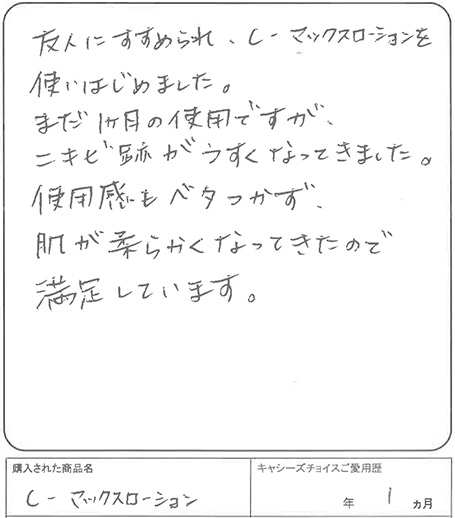 友人にすすめられ、C-マックスローションを
使いはじめました。
まだ1ヶ月の使用ですが、
ニキビ跡がうすくなってきました。
使用感もベタつかず、
肌が柔らかくなってきたので
満足しています。
購入された商品名
C-マックスローション
キャシーズチョイスご愛用歴
年 1 ヵ月